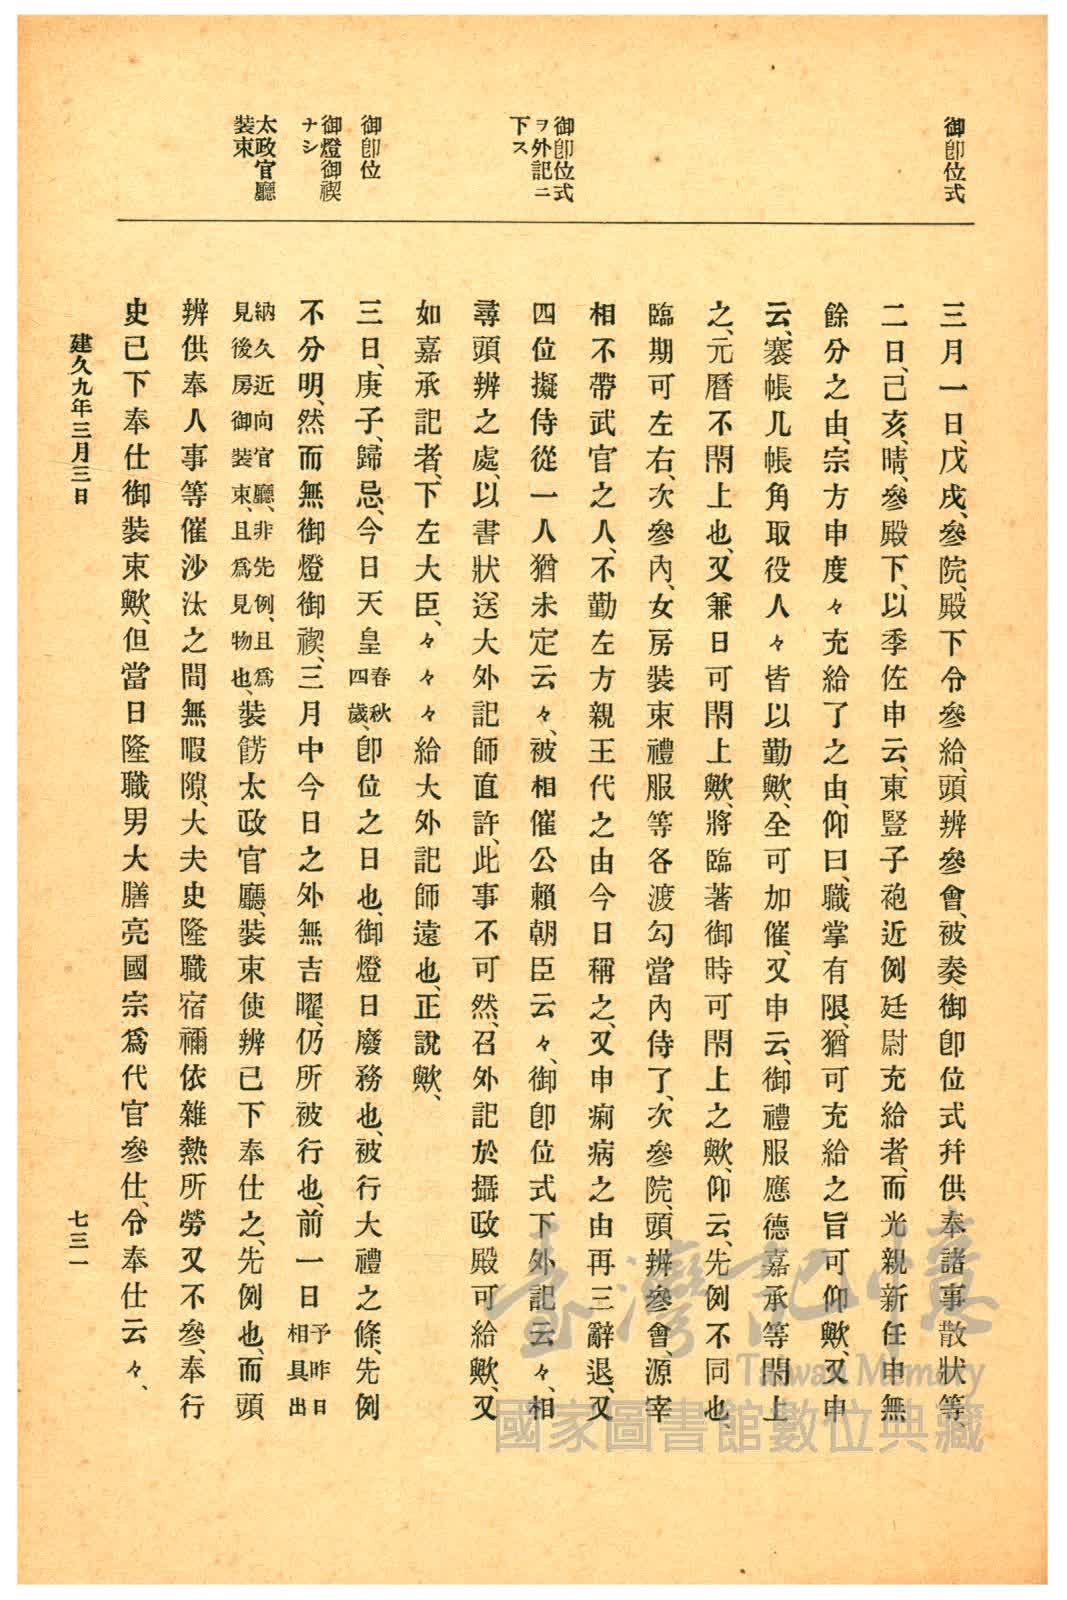 御卽位式
御卽位式
ヲ外記ニ
下ス
御卽位
御燈御禊
ナシ
太政官廳
裝束
三月一日、戊戌、參院、殿下令參給、頭辨參會、被奏御卽位式幷供奉諸事散狀等、
二日、己亥、晴、參殿下、以季佐申云、東豎子袍近例廷尉充給者、而光親新任申無
餘分之由、宗方申度々充給了之由、仰曰、職掌有限、猶可充給之旨可仰歟、又申
云、褰帳几帳角取役人々皆以勤歟、全可加催、又申云、御禮服應德嘉承等閇上
之、元曆不閇上也、又兼日可閇上歟、將臨著御時可閇上之歟、仰云、先例不同也、
臨期可左右、次參內、女房裝束禮服等各渡勾當內侍了、次參院、頭辨參會、源宰
相不帶武官之人、不勤左方親王代之由今日稱之、又申痢病之由再三辭退、又
四位擬侍從一人猶未定云々、被相催公賴朝臣云々、御卽位式下外記云々、相
尋頭辨之處、以書狀送大外記師直許、此事不可然、召外記於攝政殿可給歟、又
如嘉承記者、下左大臣、々々々給大外記師遠也、正說歟、
三日、庚子、歸忌、今日天皇春秋四歲、卽位之日也、御燈日廢務也、被行大禮之條、先例
不分明、然而無御燈御禊、三月中今日之外無吉曜、仍所被行也、前一日予昨日相具出
納久近向官廳、非先例、且爲見後房御裝束、且爲見物也、裝餝太政官廳、裝束使辨已下奉仕之、先例也、而頭
辨供奉人事等催沙汰之間無暇隙、大夫史隆職宿禰依雜熱所勞又不參、奉行
史已下奉仕御裝束歟、但當日隆職男大膳亮國宗爲代官參仕、令奉仕云々、
建久九年三月三日
七三一
臺灣記憶
Taiwan Memory
國家圖書館數位典藏